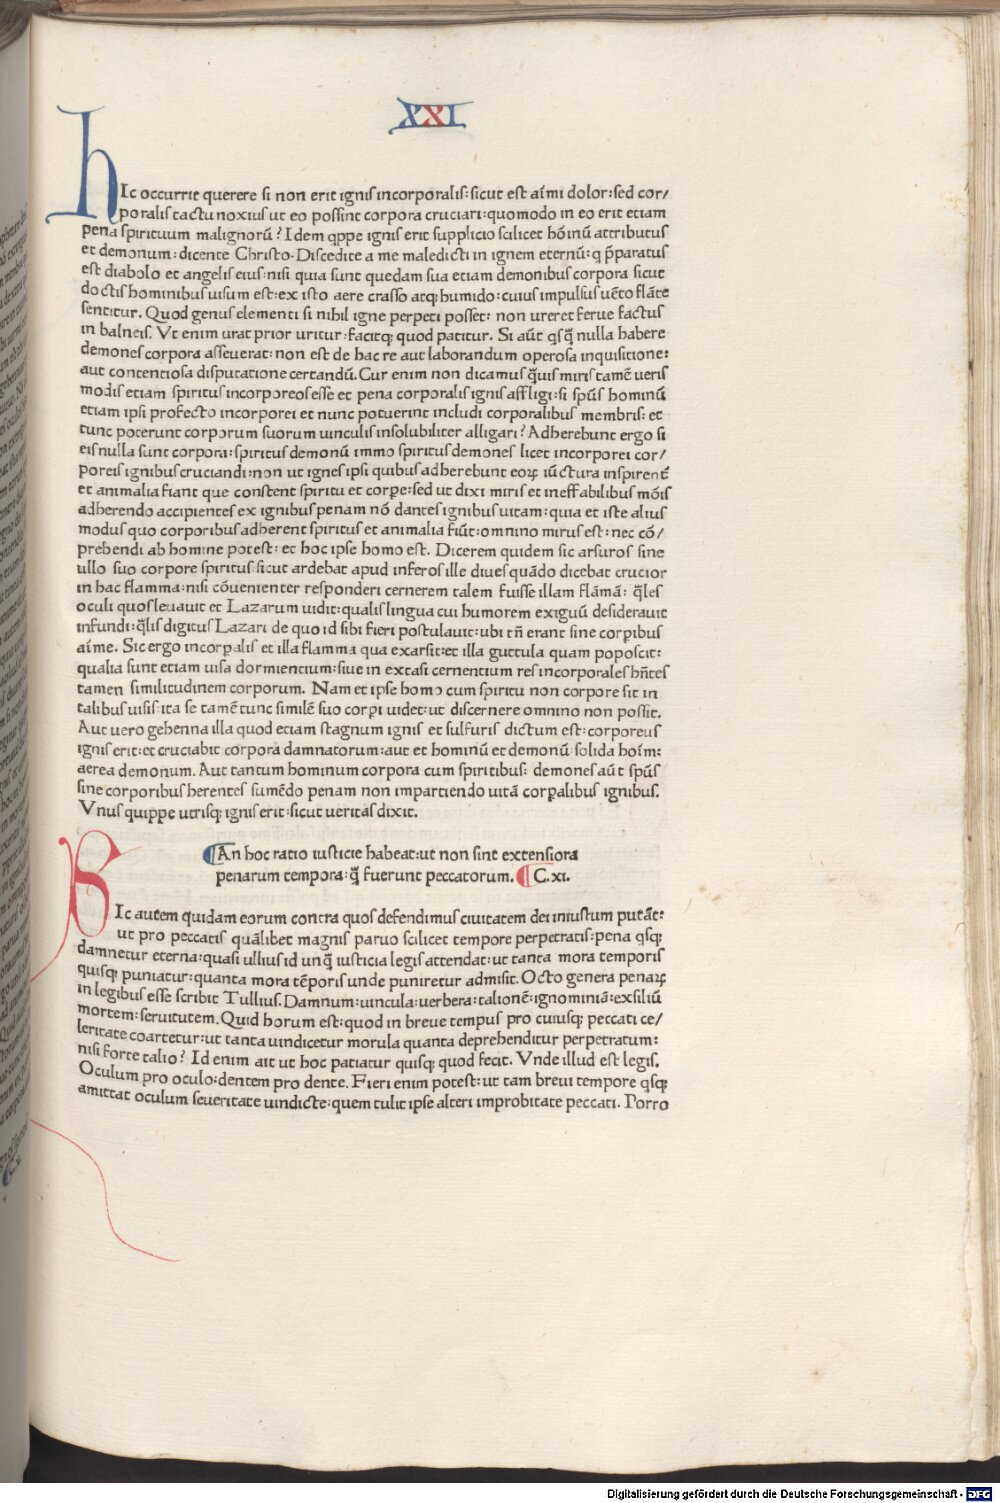 XXI
hIc occurrit querere si non erit ignis incorporalis: sicut est aĩmi dolor: sed cor/
poralis tactu noxius ut eo possint corpora cruciari: quomodo in eo erit etiam
pena spirituum malignorũ? Idem qppe ignis erit supplicio scilicet hõinũ attributus
et demonum: dicente Christo. Discedite a me maledicti in ignem eternũ: q p̃paratus
est diabolo et angelis eius: nisi quia sunt quedam sua etiam demonibus corpora sicut
doctis hominibus uisum est: ex isto aere crasso atq; humido: cuius impulsus uẽto flãte
sentitur. Quod genus elementi si nihil igne perpeti posset: non ureret ferue factus
in balneis. Vt enim urat prior uritur: facitq; quod patitur. Si aũt qsq̃ nulla habere
demones corpora asseuerat: non est de hac re aut laborandum operosa inquisitione:
aut contentiosa disputatione certandũ. Cur enim non dicamus q̃uis miris tamẽ ueris
modis etiam spiritus incorporeos esse et pena corporalis ignis affligi: si spũs hominũ
etiam ipsi profecto incorporei et nunc potuerint includi corporalibus membris: et
tunc poterunt corporum suorum uinculis insolubiliter alligari? Adherebunt ergo si
eis nulla sunt corpora: spiritus demonũ immo spiritus demones licet incorporei cor/
poreis ignibus cruciandi: non ut ignes ipsi quibus adherebunt eoꝝ iũctura inspirent̃
et animalia fiant que constent spiritu et corꝑe: sed ut dixi miris et ineffabilibus mõis
adherendo accipientes ex ignibus penam nõ dantes ignibus uitam: quia et iste alius
modus quo corporibus adherent spiritus et animalia fiũt: omnino mirus est: nec cõ/
prehendi ab homine potest: et hoc ipse homo est. Dicerem quidem sic arsuros sine
ullo suo corpore spiritus: sicut ardebat apud inferos ille diues quãdo dicebat crucior
in hac flamma: nisi cõuenienter responderi cernerem talem fuisse illam flãmã: q̃les
oculi quos leuauit et Lazarum uidit: qualis lingua cui humorem exiguũ desiderauit
infundi: q̃lis digitus Lazari de quo id sibi fieri postulauit: ubi tñ erant sine corꝑibus
aĩme. Sic ergo incorꝑalis et illa flamma qua exarsit: et illa guttula quam poposcit:
qualia sunt etiam uisa dormientium: siue in extasi cernentium res incorporales hñtes
tamen similitudinem corporum. Nam et ipse homo cum spiritu non corpore sit in
talibus uisis: ita se tamẽ tunc similẽ suo corꝑi uidet: ut discernere omnino non possit.
Aut uero gehenna illa quod etiam stagnum ignis et sulfuris dictum est: corporeus
ignis erit: et cruciabit corpora damnatorum: aut et hominũ et demonũ: solida hoĩm:
aerea demonum. Aut tantum hominum corpora cum spiritibus: demones aũt spũs
sine corporibus herentes sumẽdo penam non impartiendo uitã corꝑalibus ignibus.
Vnus quippe utrisq; ignis erit: sicut ueritas dixit.
¶An hoc ratio iusticie habeat: ut non sint extensiora
penarum tempora: q̃ fuerunt peccatorum. ¶C. xi.
SIc autem quidam eorum contra quos defendimus ciuitatem dei iniustum putãt:
ut pro peccatis quãlibet magnis paruo scilicet tempore perpetratis: pena qsq;
damnetur eterna: quasi ullius id unq̃ iusticia legis attendat: ut tanta mora temporis
quisq; puniatur: quanta mora tẽporis unde puniretur admisit. Octo genera penaꝝ
in legibus esse scribit Tullius. Damnum: uincula: uerbera: talionẽ: ignominiã: exsiliũ
mortem: seruitutem. Quid horum est: quod in breue tempus pro cuiusq; peccati ce/
leritate coartetur: ut tanta uindicetur morula quanta deprehenditur perpetratum:
nisi forte talio? Id enim ait ut hoc patiatur quisq; quod fecit. Vnde illud est legis.
Oculum pro oculo: dentem pro dente. Fieri enim potest: ut tam breui tempore qsq;
amittat oculum seueritate uindicte: quem tulit ipse alteri improbitate peccati. Porro
Digitalisierung gefördert durch die Deutsche Forschungsgemeinschaft - DFG